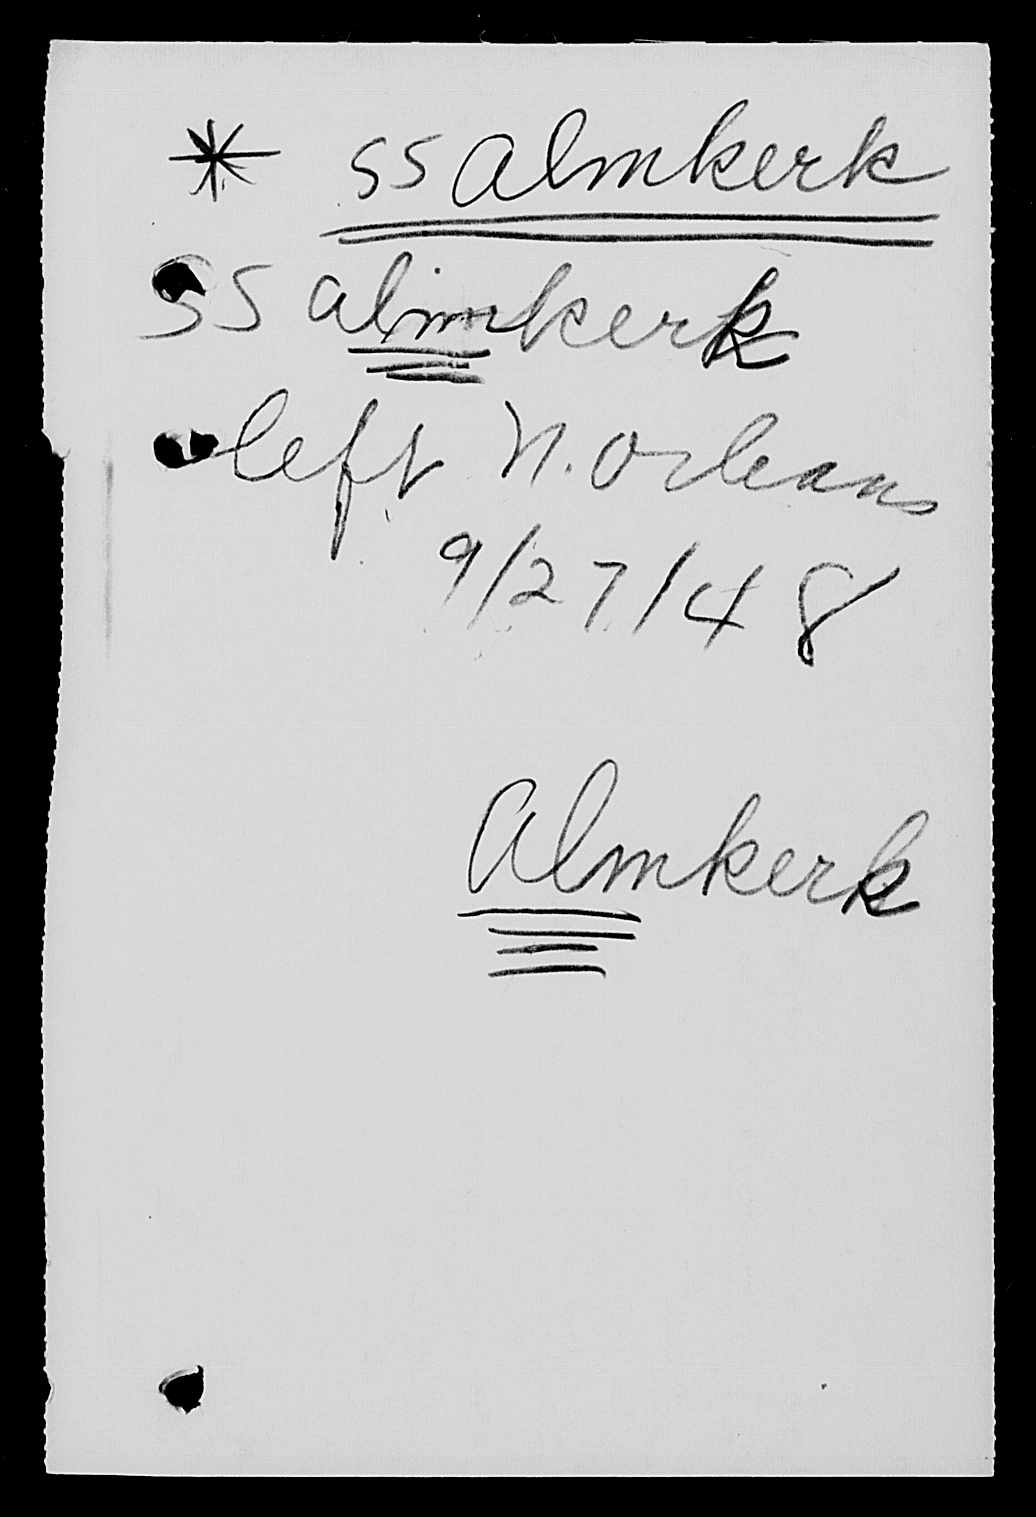 * SS Almkerk
SS Almkerk
left N. Orleans
9/27/48
Almkerk